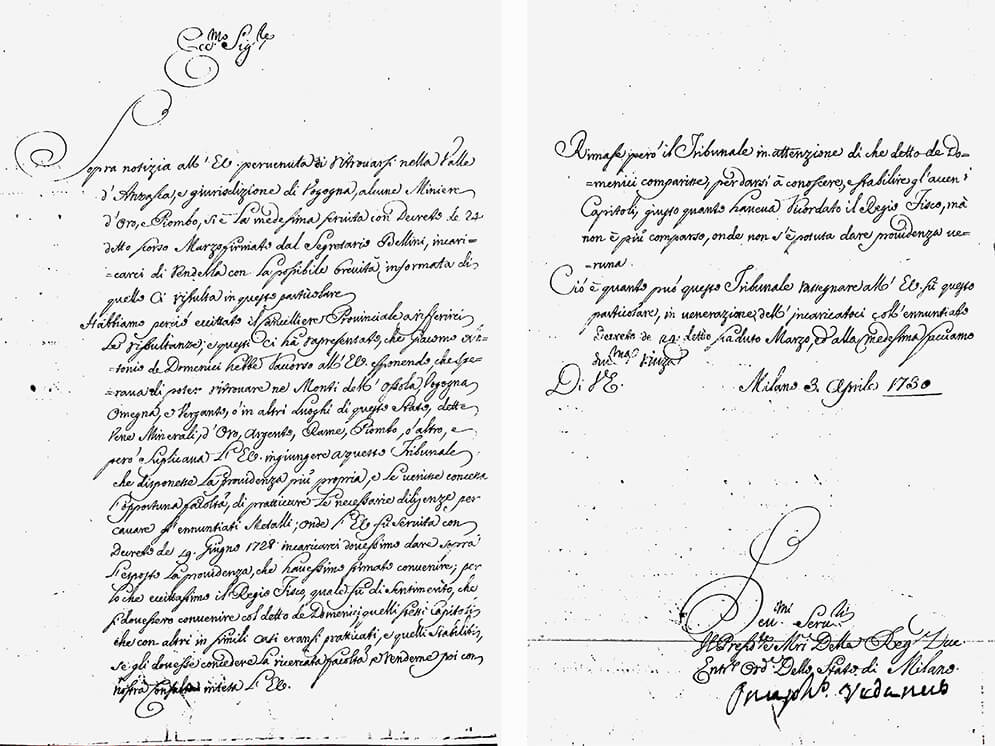 Ecc.mo Sig.re
Sopra notizia all' E.V. pervenuta di ritrovarsi nella Valle
d'Anzasca, e giurisdizione di Vogogna, alcune Miniere
d'Oro, e Piombo, si è la medesima servita con Decreto de 24
detto scorso Marzo firmato dal Segretario Bellini, incari=
=carci di renderla con la possibile brevità informata di
quello Ci risulta in questo particolare
Habbiamo perciò eccitato il Cancelliere Provinciale a riferirci
le risultanze; e questi Ci ha rapresentato, che Giacomo An=
tonio de Domenici hebbe ricorso all' E.V. esponendo, che spe=
rava di poter ritrovare ne Monti dell' Ossola, Vogogna
Omegna, e Vergante, ò in altri Luoghi di questo Stato, dette
Vene Minerali, d'Oro, Argento, Rame, Piombo, ò altro, e
però suplicava l' E.V. ingiungere a questo Tribunale
che disponesse la providenza più propria, e le venisse concessa
l'opportuna facoltà, di pratticare le necessarie diligenze per
cavare gl' ennuntiati Metalli; onde l' E.V. fù servita con
Decreto de 19. Giugno 1728 incaricarci dovessimo dare sopra
l'esposto la providenza, che havessimo stimato convenire; per
lo che eccitassimo il Regio Fisco, quale fù di sentimento, che
si dovessero convenire col detto de Domenici quelli stessi Capitoli,
che con altri in simili casi eransi pratticati, e quelli stabiliti,
se gli dovesse concedere la ricercata facoltà, e renderne poi con
nostra Consulta intesa l' E.V.
Rimase però il Tribunale in attenzione di che detto de Do=
=menici comparisse, per darsi à conoscere, e stabilire gl'accen.i
Capitoli, giusto quanto haveva ricordato il Regio Fisco, mà
non è più comparso, onde non s'è potuta dare providenza ve=
runa.
Ciò è quanto può questo Tribunale rassegnare all' E.V. sù questo
particolare, in venerazione dell' incaricatoci coll' ennuntiato
Decreto de 24. detto scaduto Marzo, ed alla medesima facciamo
Di V.E. Milano 3 Aprile 1730
Dev.mi Serv.ri
Il Presid.te e M.ri Delle Reg.e Duc.e
Entr.e Ord.e Dello Stato di Milano